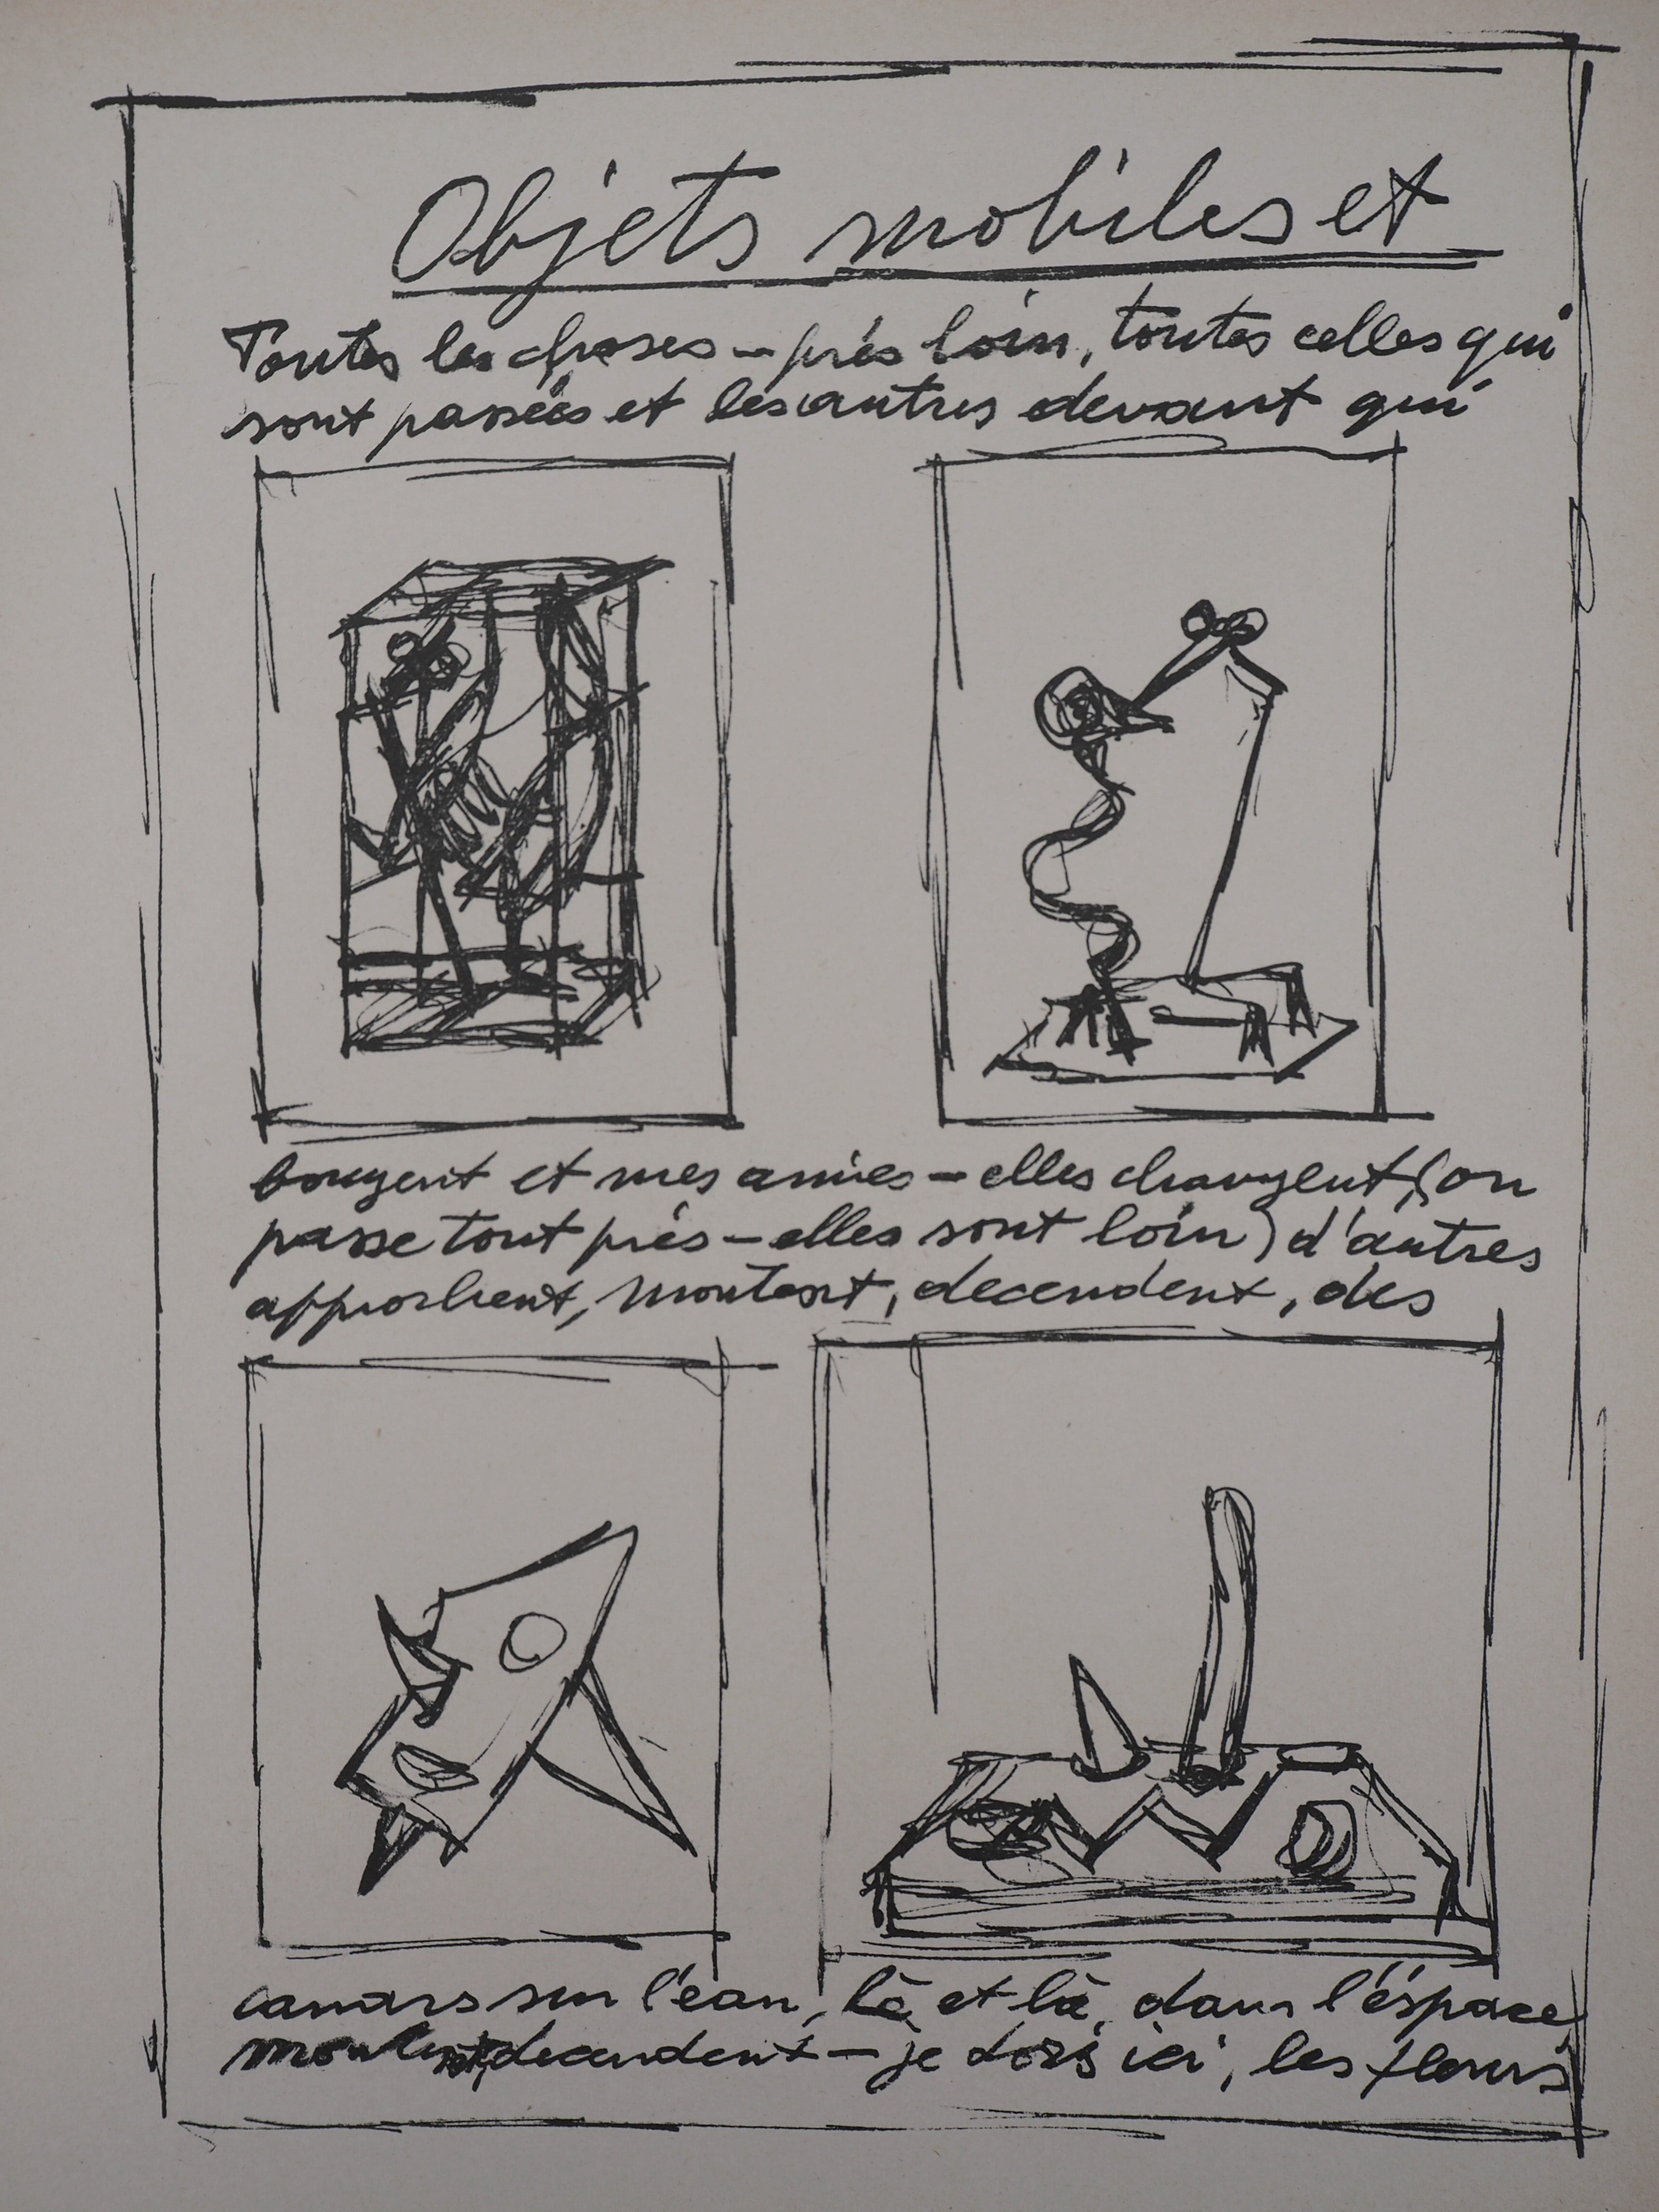 Objets mobiles et
Toutes les choses - près loin, toutes celles qui
sont passées et les autres devant qui
bougent et mes amies - elles changent (on
passe tout près - elles sont loin) d'autres
approchent, montent, decendent, des
canars sur l'eau, là et là, dans l'éspace,
montent, decendent - je dors ici, les fleurs